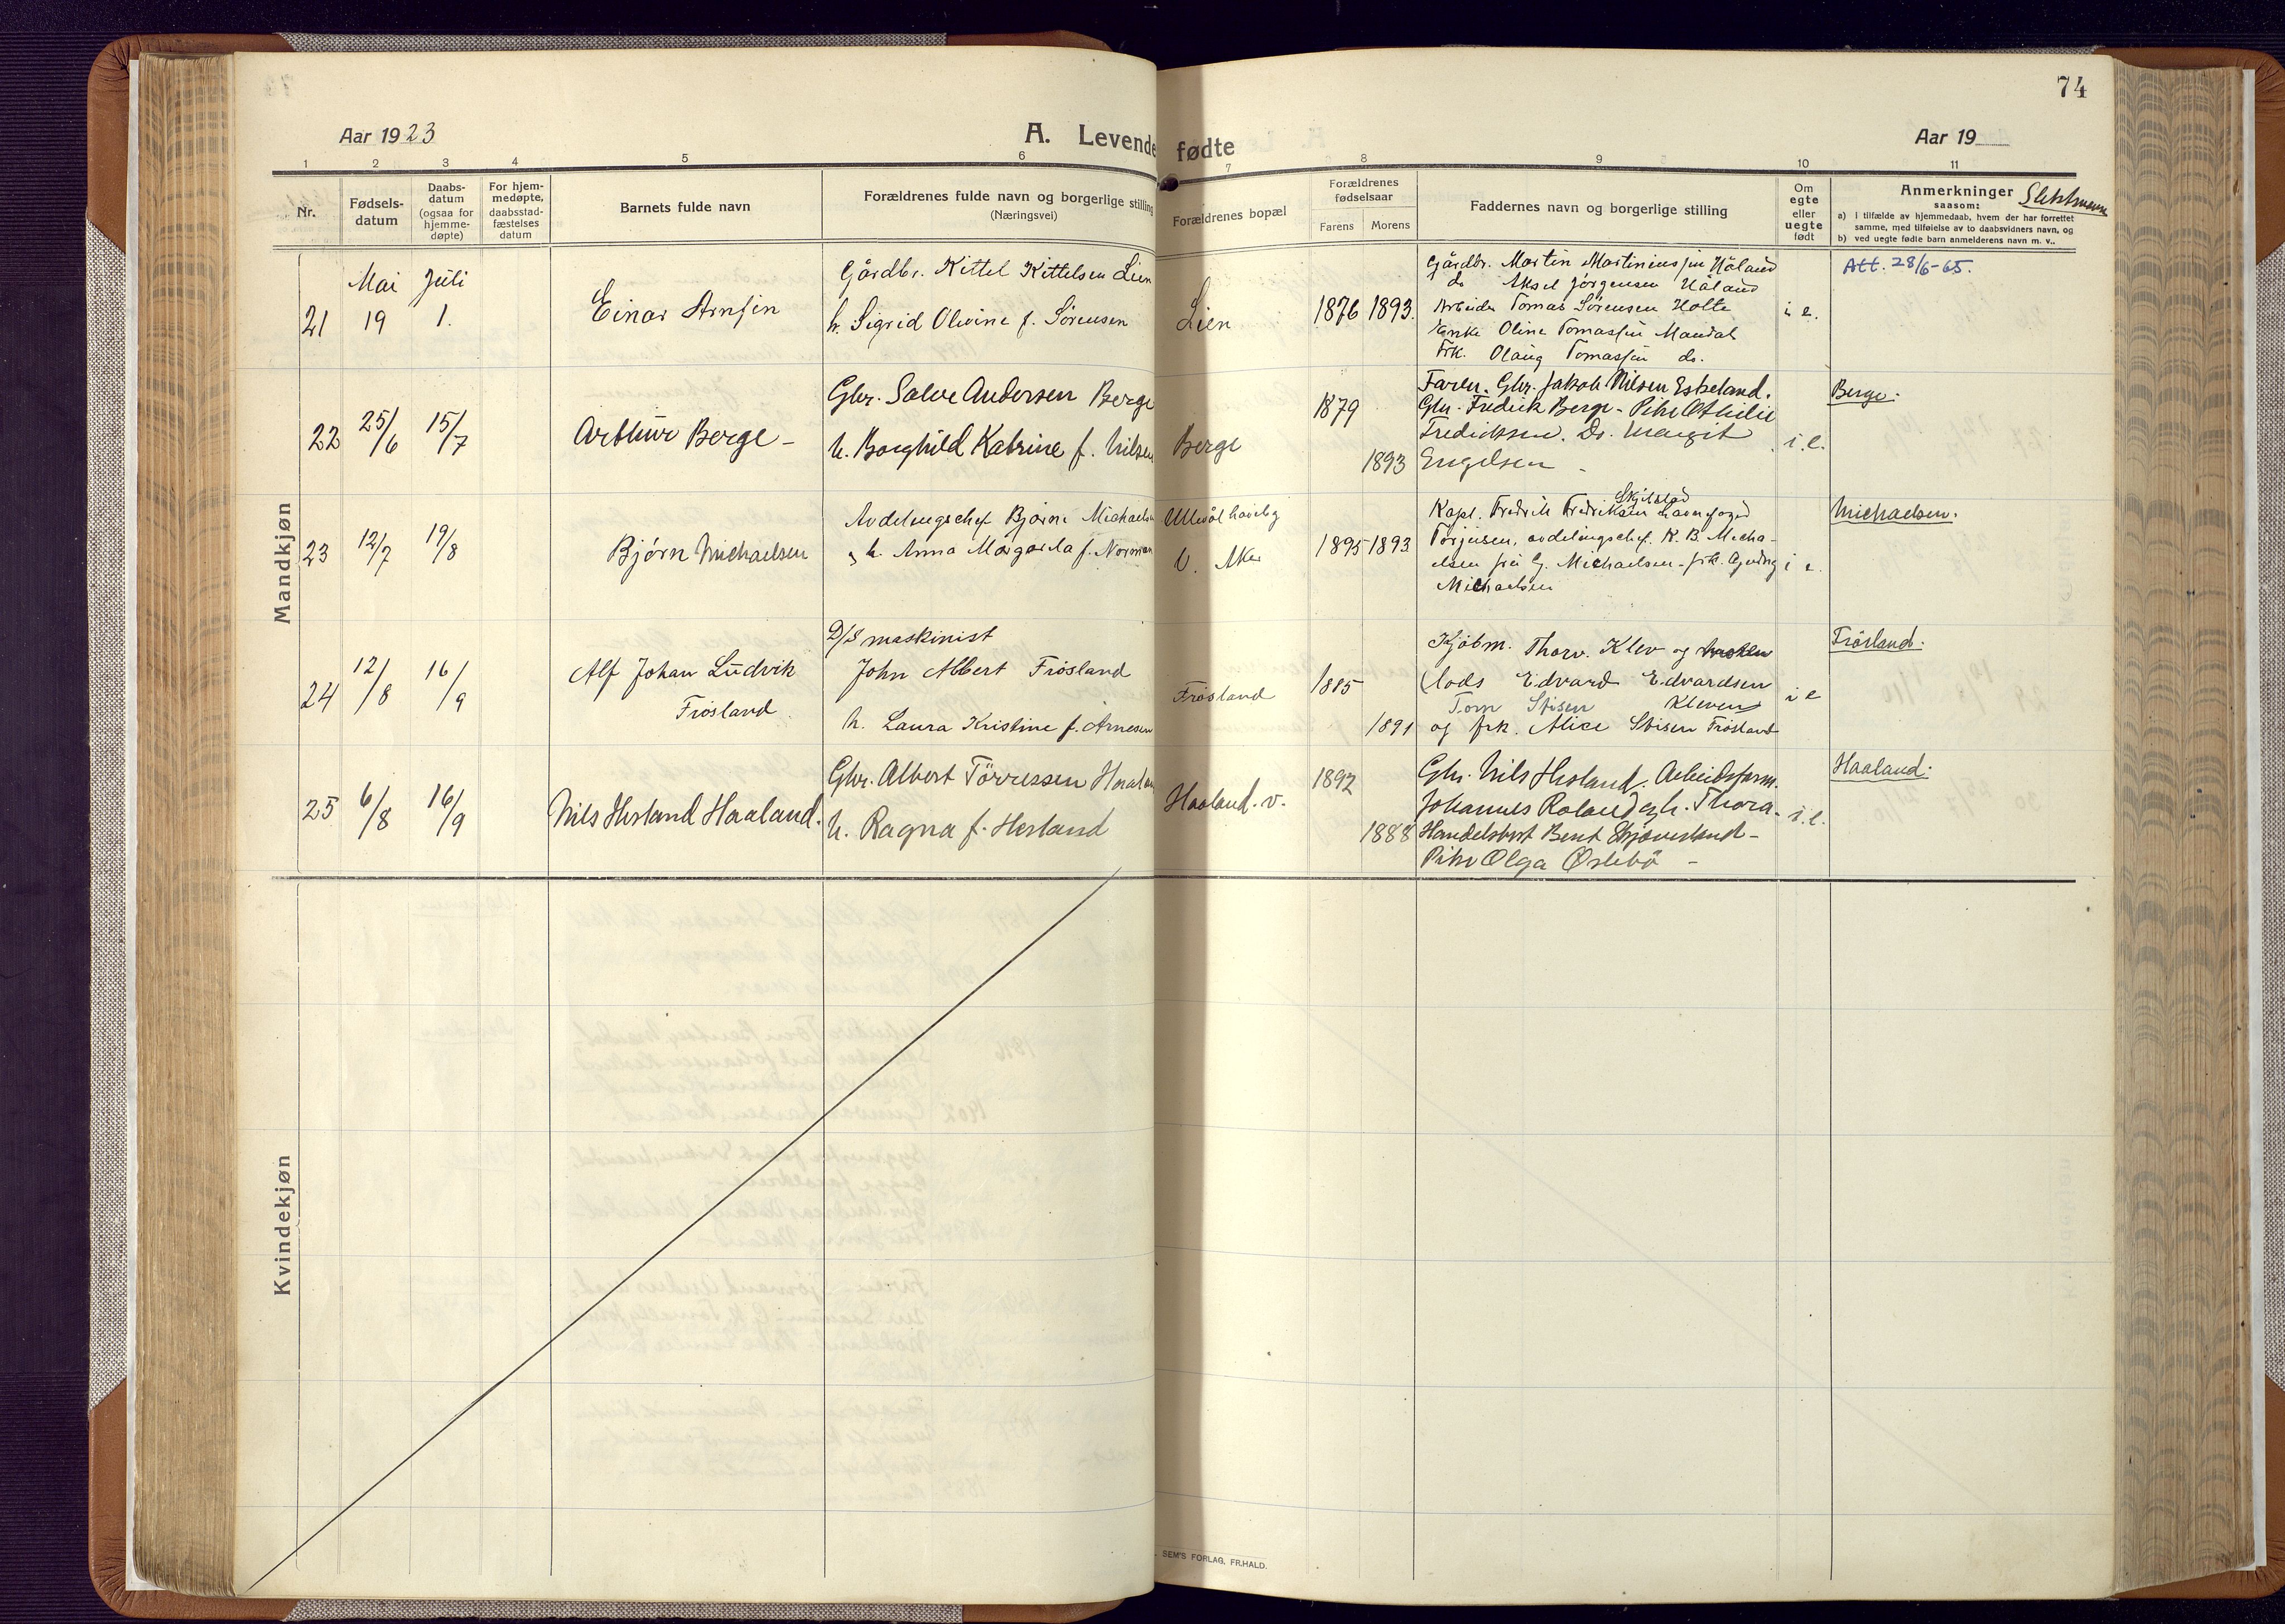 74
Aar 1923
A. Levende fødte
Aar 19
1 2 3 4 5 6 7 8 9 10 11
Nr.
Fødsels-
datum
Daabs-
datum
(ogsaa for
hjemme-
døpte)
For hjem-
medøpte,
daabsstad-
fæstelses
datum
Barnets fulde navn
Forældrenes fulde navn og borgerlige stilling
(Næringsvei)
Forældrenes bopæl
Forældrenes
fødselsaar
Farens Morens
Faddernes navn og borgerlige stilling
Om
egte
eller
uegte
født
Anmerkninger
saasom:
a) i tilfælde av hjemmedaab, hvem der har forrettet
samme, med tilføielse av to daabsvidners navn, og
b) ved uegte fødte barn anmelderens navn m. v..
Mandkjøn
21
Mai
19
Juli
1.
Einar Arnsen
Gårdbr. Kittel Kittelsen Lien
h. Sigrid Olivine f. Sørensen
Lien
1876 1893.
Gårdbr. Martin Martiniussen Håland
do Aksel Jörgensen Håland
Arbeider Tomas Sörensen Holte
Enke Oline Tomassen Mandal
Frk. Olaug Tomassen do.
i e.
Att. 28/6-65.
22
25/6
15/7
Arthur Berge -
Gbr. Salve Andersen Berge
h. Borghild Katrine f. Nilsen
Berge
1879
1893
Faren. Gbr. Jakob Nilsen Eskeland.
Gbr. Fredrik Berge - Pike Othilie
Fredriksen. Do. Margit
Engelsen -
i.e.
Berge.
23
12/7
19/8
Bjørn Michaelsen
Avdelingschef Bjarne Michaelsen
h. Anna Margarita f. Norman
Ullevål haveby
V. Aker
1895 1893
Skjelstad
Kapt. Fredrik Fredriksen havnefoged
Torjusen, avdelingschef K. B. Micha-
elsen fru G. Michaelsen - frk.
Michaelsen
i e.
Michaelsen.
24
12/8
16/9
Alf Johan Ludvik
Frøsland
D/S maskinist
John Albert Frøsland
h. Laura Kristine f. Arnesen
Frøsland
1885
1891
Kjøbm. Thorv. Klev og
Lods Edvard Edvardsen
Tom Stisen Kleven
og frk. Alice Stisen Frøsland
i e
Frösland.
25
6/8
16/9
Nils Herland Haaland.
Gbr. Albert Törressen Haaland
h. Ragna f. Herland
Haaland. v.
1892
1888
Gbr. Nils Herland. Arbeidsform.
Johannes Roland og h. Thora -
Handelsbest Bent Skjævesland -
Pike Olga Øslebö -
i.e.
Haaland.
Kvindekjøn
SEM'S FORLAG, FR.HALD.